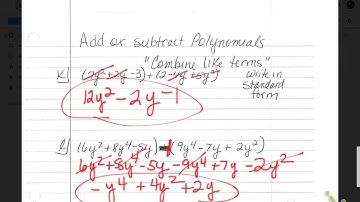 Add or subtract Polynomials
"Combine like terms"
K) (7y²+2y-3)+(2-4y+5y²) Write in
standard
form
12y²-2y-1
l) (6y²+8y⁴-5y)-(9y⁴-7y+2y²)
6y²+8y⁴-5y-9y⁴+7y-2y²
-y⁴+4y²+2y